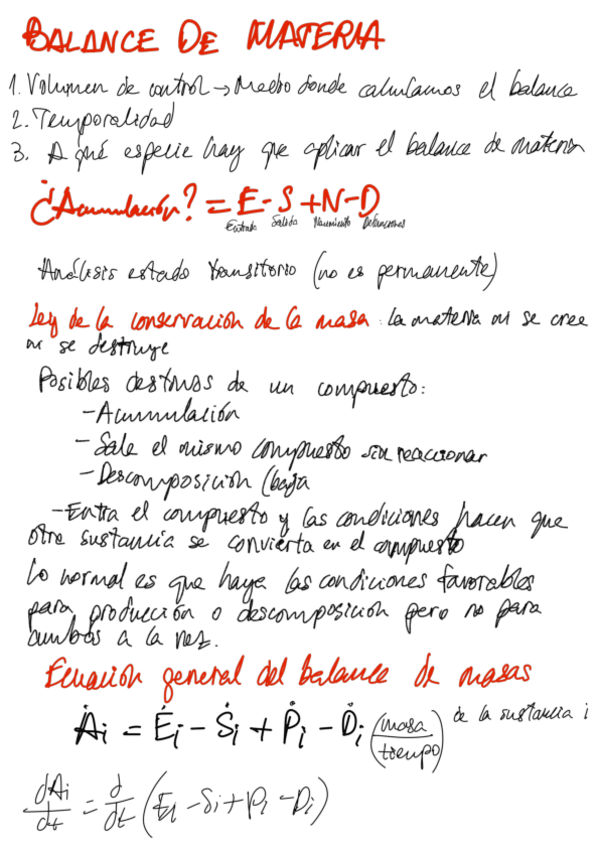 BALANCE DE MATERIA
1. Volumen de control → Medio donde calculamos el balance
2. Temporalidad
3. A qué especie hay que aplicar el balance de materia
¿Acumulación? = E - S + N - D
Entrada Salida Nacimiento Defunciones
Análisis estado transitorio (no es permanente)
Ley de la conservación de la masa: la materia ni se crea
ni se destruye
Posibles destinos de un compuesto:
- Acumulación
- Sale el mismo compuesto sin reaccionar
- Descomposición (baja
- Entra el compuesto y las condiciones hacen que
otra sustancia se convierta en el compuesto
Lo normal es que haya las condiciones favorables
para producción o descomposición pero no para
ambos a la vez.
Ecuación general del balance de masas
Ȧi = Ėi - Ṡi + Ṗi - Ḋi (masa/tiempo) de la sustancia i
dAi/dt = d/dt (Ei - Si + Pi - Di)